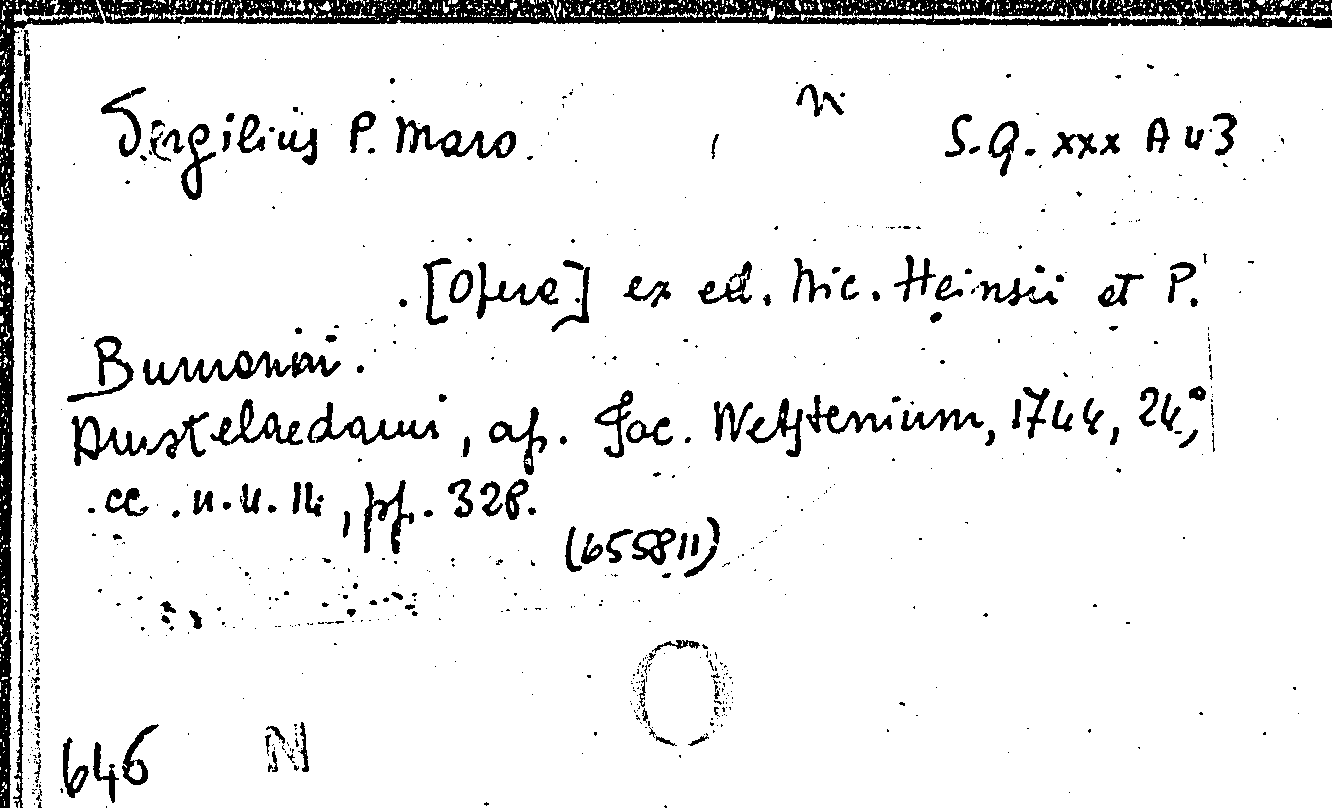 Vergilius P. Maro. n S.Q. xxx A 43
[Opera] ex ed. Nic. Heinsii et P.
Burmanni.
Amstelaedami, ap. Jac. Wetstenium, 1744, 24°,
cc. n.n. 14, pp. 328.
(655811)
646 N